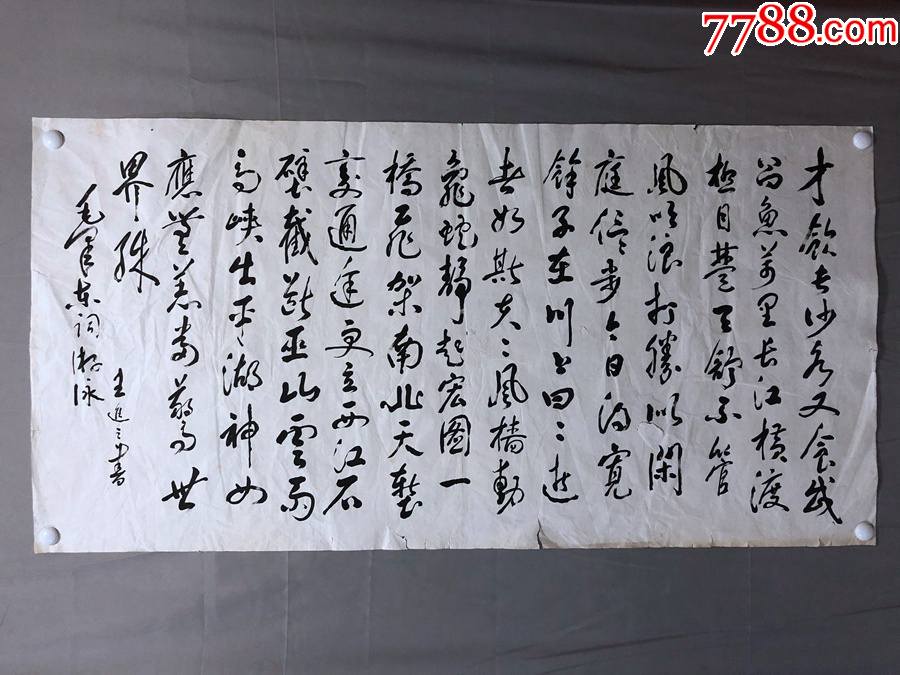 7788.com
才飲長沙水又食武
昌魚萬里長江橫渡
極目楚天舒不管
風吹浪打勝似閑
庭信步今日得寬
餘子在川上曰〻逝
者如斯夫〻風檣動
龜蛇靜起宏圖一
橋飛架南北天塹
變通途更立西江石
壁截斷巫山雲雨
高峽出平湖神女
應無恙當驚世
界殊
毛澤東詞游泳
王進之書